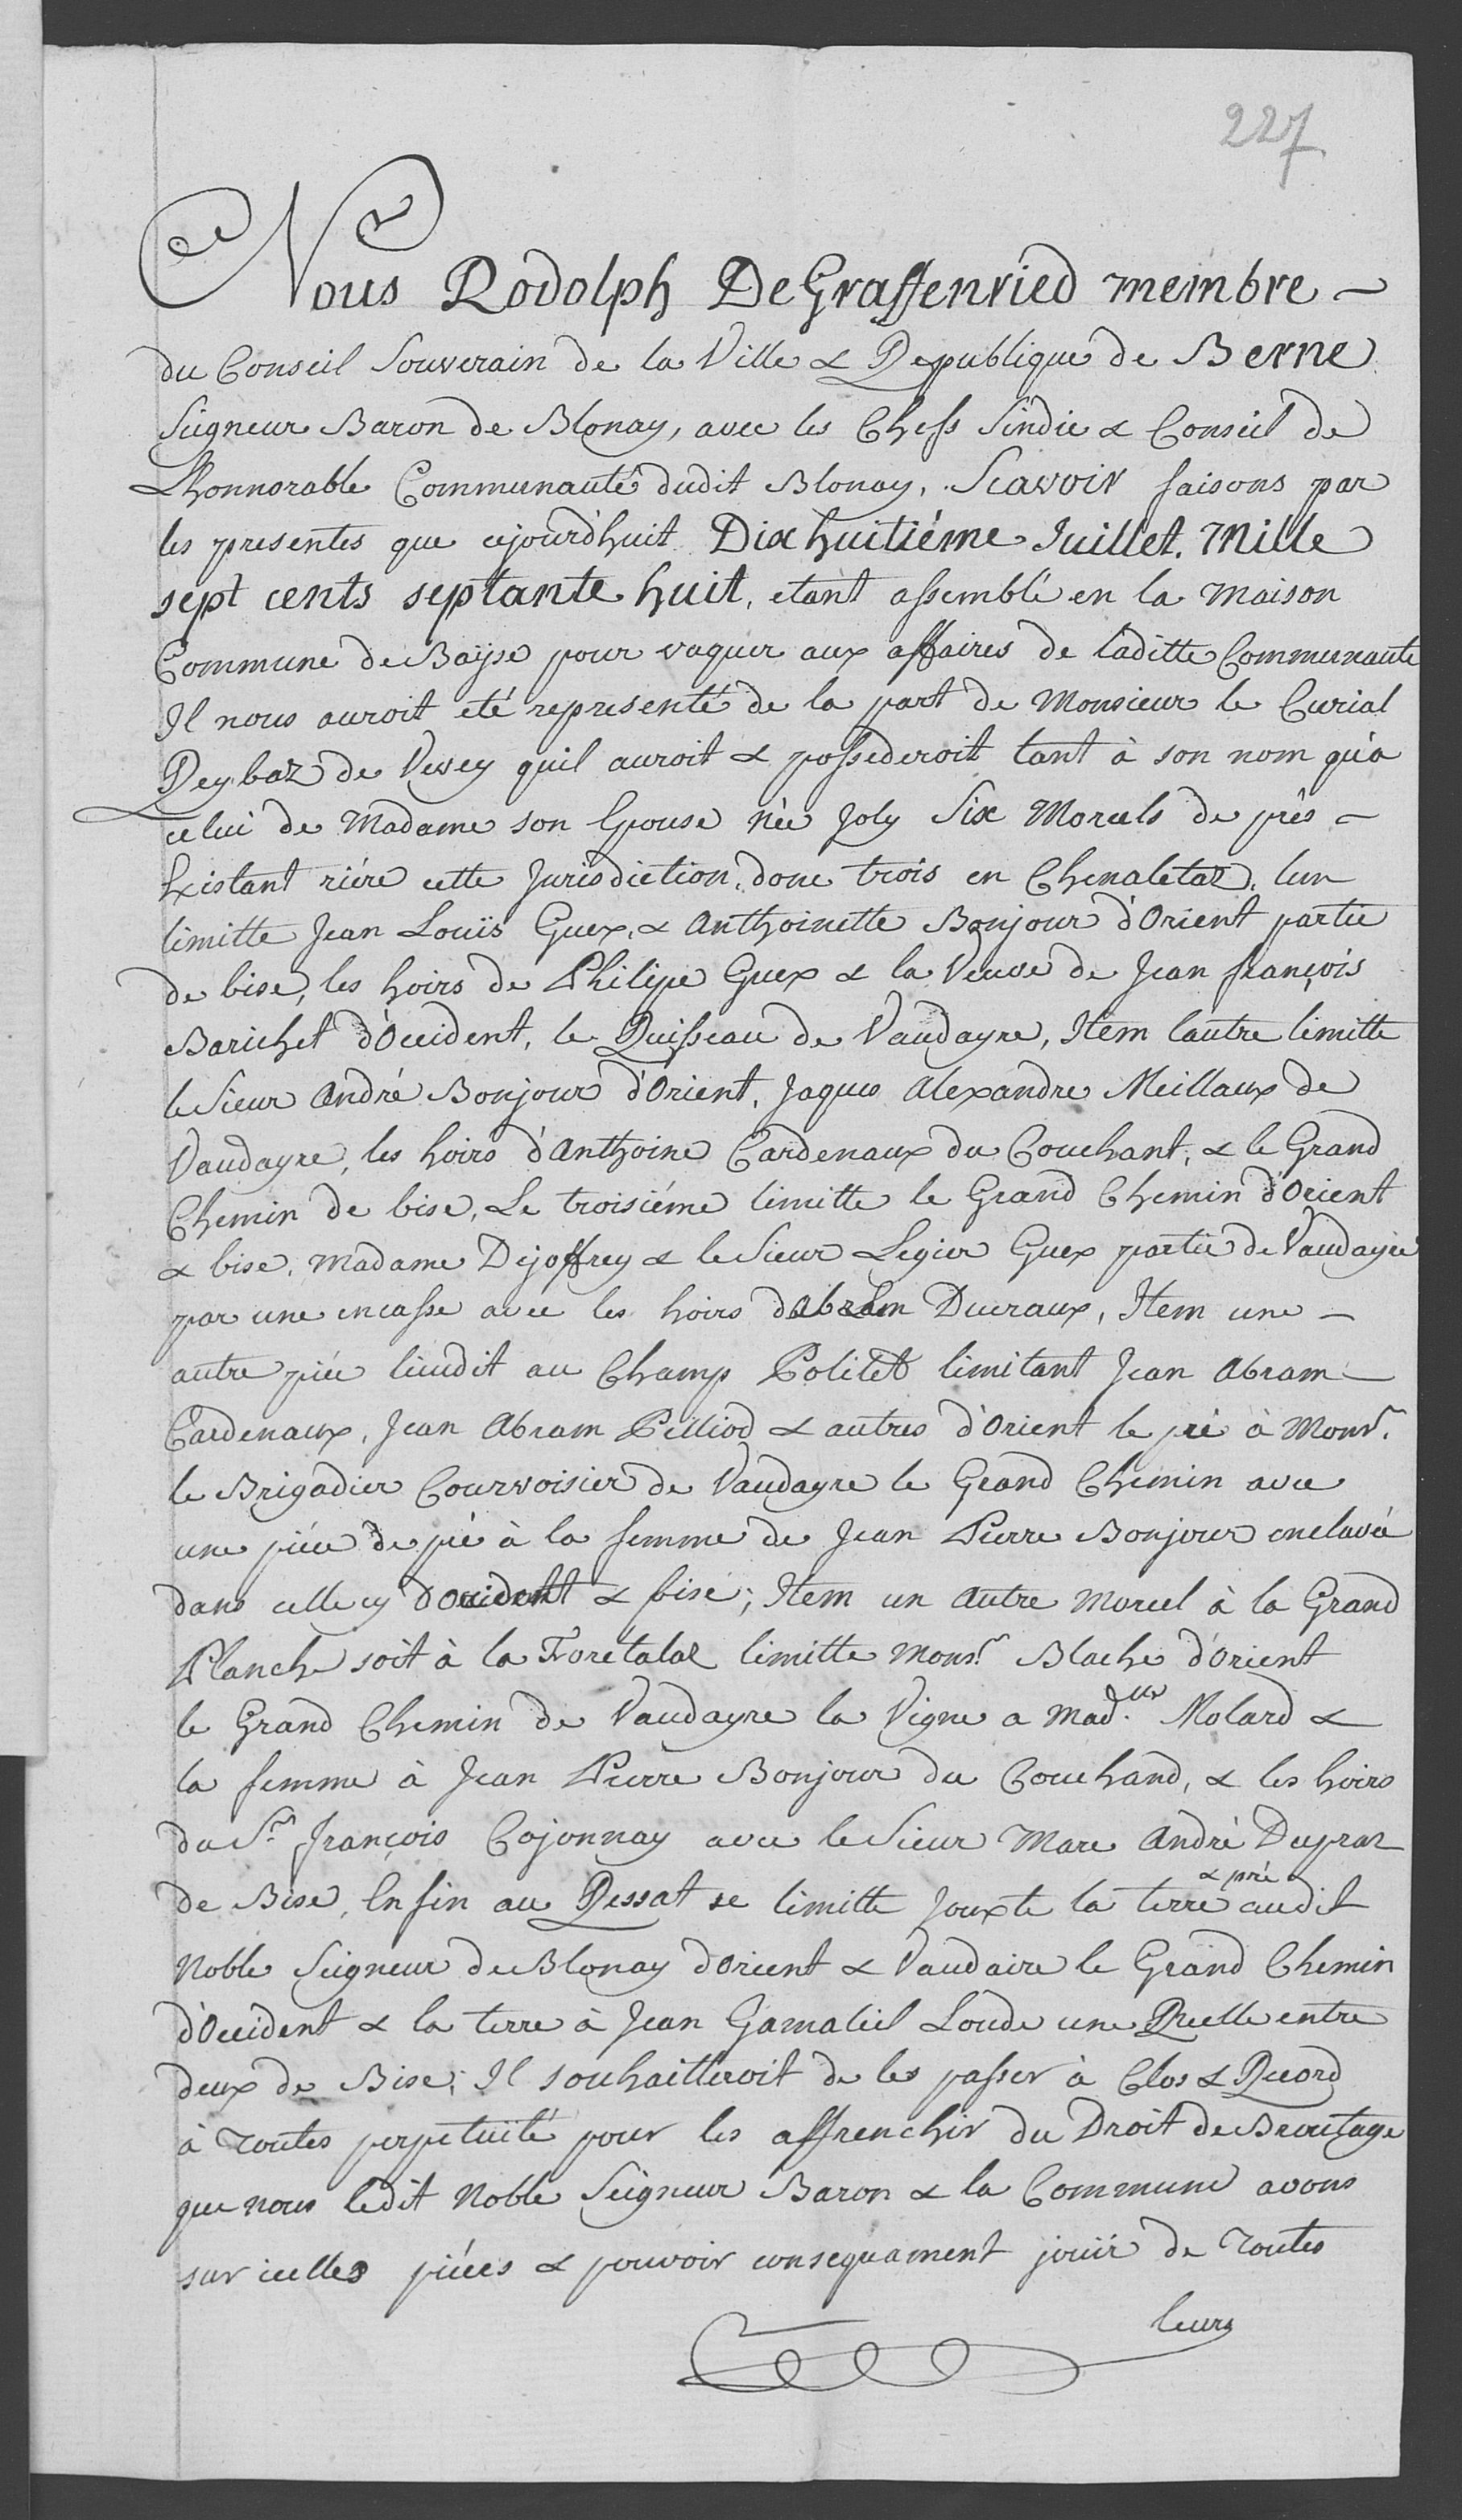 227
Nous Rodolph DeGraffenried membre
du Conseil Souverain de la Ville & Republique de Berne
Seigneur Baron de Blonay, avec les Chefs Sindic & Conseil de
Lhonnorable Communauté dudit Blonay, Scavoir faisons par
les presentes que cejourd'huit Dix huitiéme Juillet. Mille
sept cents septante huit, etant assemblé en la Maison
Commune de Baÿse pour vaquer aux affaires de laditte Communauté
Il nous auroit eté representé de la part de Monsieur le Curial
Reybaz de Vevey quil auroit & possederoit tant à son nom qu'a
celui de Madame son Epouse née Joly Six Morcels de prés
Existant riére cette Jurisdiction, donc trois en Chenaletaz, lun
limitte Jean Louïs Guex, & Anthoinette Bonjour d'Orient partie
de bise, les hoirs de Philipe Guex & la Veuve de Jean françois
Barichet d'Occident, le Ruisseau de Vaudayre, Item lautre limitte
le Sieur André Bonjour d'Orient, Jaques Alexandre Meillaux de
Vaudayre, les hoirs d'Anthoine Cardenaux du Couchant, & le Grand
Chemin de bise, Le troisiéme limitte le Grand Chemin d'Orient
& bise, Madame Dejoffrey & le Sieur Legier Guex partie de Vaudayre
par une encasse avec les hoirs dabram Ducraux, Item une
autre piéce lieudit au Champ Politet limitant Jean Abram
Cardenaux, Jean Abram Pilliod & autres d'Orient le pré à Monsr.
le Brigadier Courvoisier de Vaudayre le Grand Chemin avec
une piéce de pré à la femme de Jean Pierre Bonjour enclavée
dans celle cy d'Occident & bise; Item un Autre Morcel à la Grand
Planche soit à la Foretalaz limitte Monsr. Blache d'Orient
le Grand Chemin de Vaudayre la Vigne a Mad.lle Molard &
la femme à Jean Pierre Bonjour du Couchand, & les hoirs
du Sr. françois Cojonnay avec le Sieur Marc André Dupraz
de Bise, Enfin au Ressat se limitte Jouxte la terre & pré audit
Noble Seigneur de Blonay d'Orient & Vaudaire le Grand Chemin
d'Occident & la terre à Jean Gamaliel Loude une Ruelle entre
deux de Bise; Il souhaitteroit de les passer à Clos & Record
à toutes perpetuité pour les affrenchir du Droit de Broutage
que nous ledit Noble Seigneur Baron & la Commune avons
sur icelles piéces & pouvoir consequament jouïr de toutes
leurs